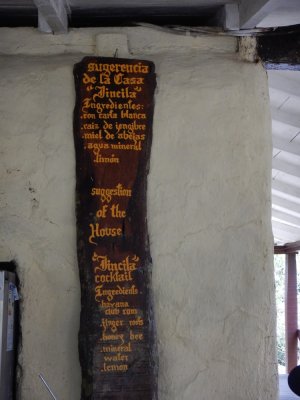 sugerencia
de la Casa
"Jincila"
Ingredientes:
.ron carta blanca
.raiz de jengibre
miel de abejas
.agua mineral
.limón
suggestion
of the
House
"Jincila"
cocktail
Ingredients
.havana
club rom
.finger roots
.honey bee
.mineral
water
.lemon